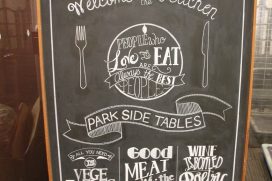 Welcome to the Kitchen
PEOPLE who
Love to EAT
ARE
Always the BEST
PEOPLE
PARK SIDE TABLES
ALL YOU NEED
IS
VEGE
GOOD
MEAT
is the
WINE
is BOTTLED
Poetry